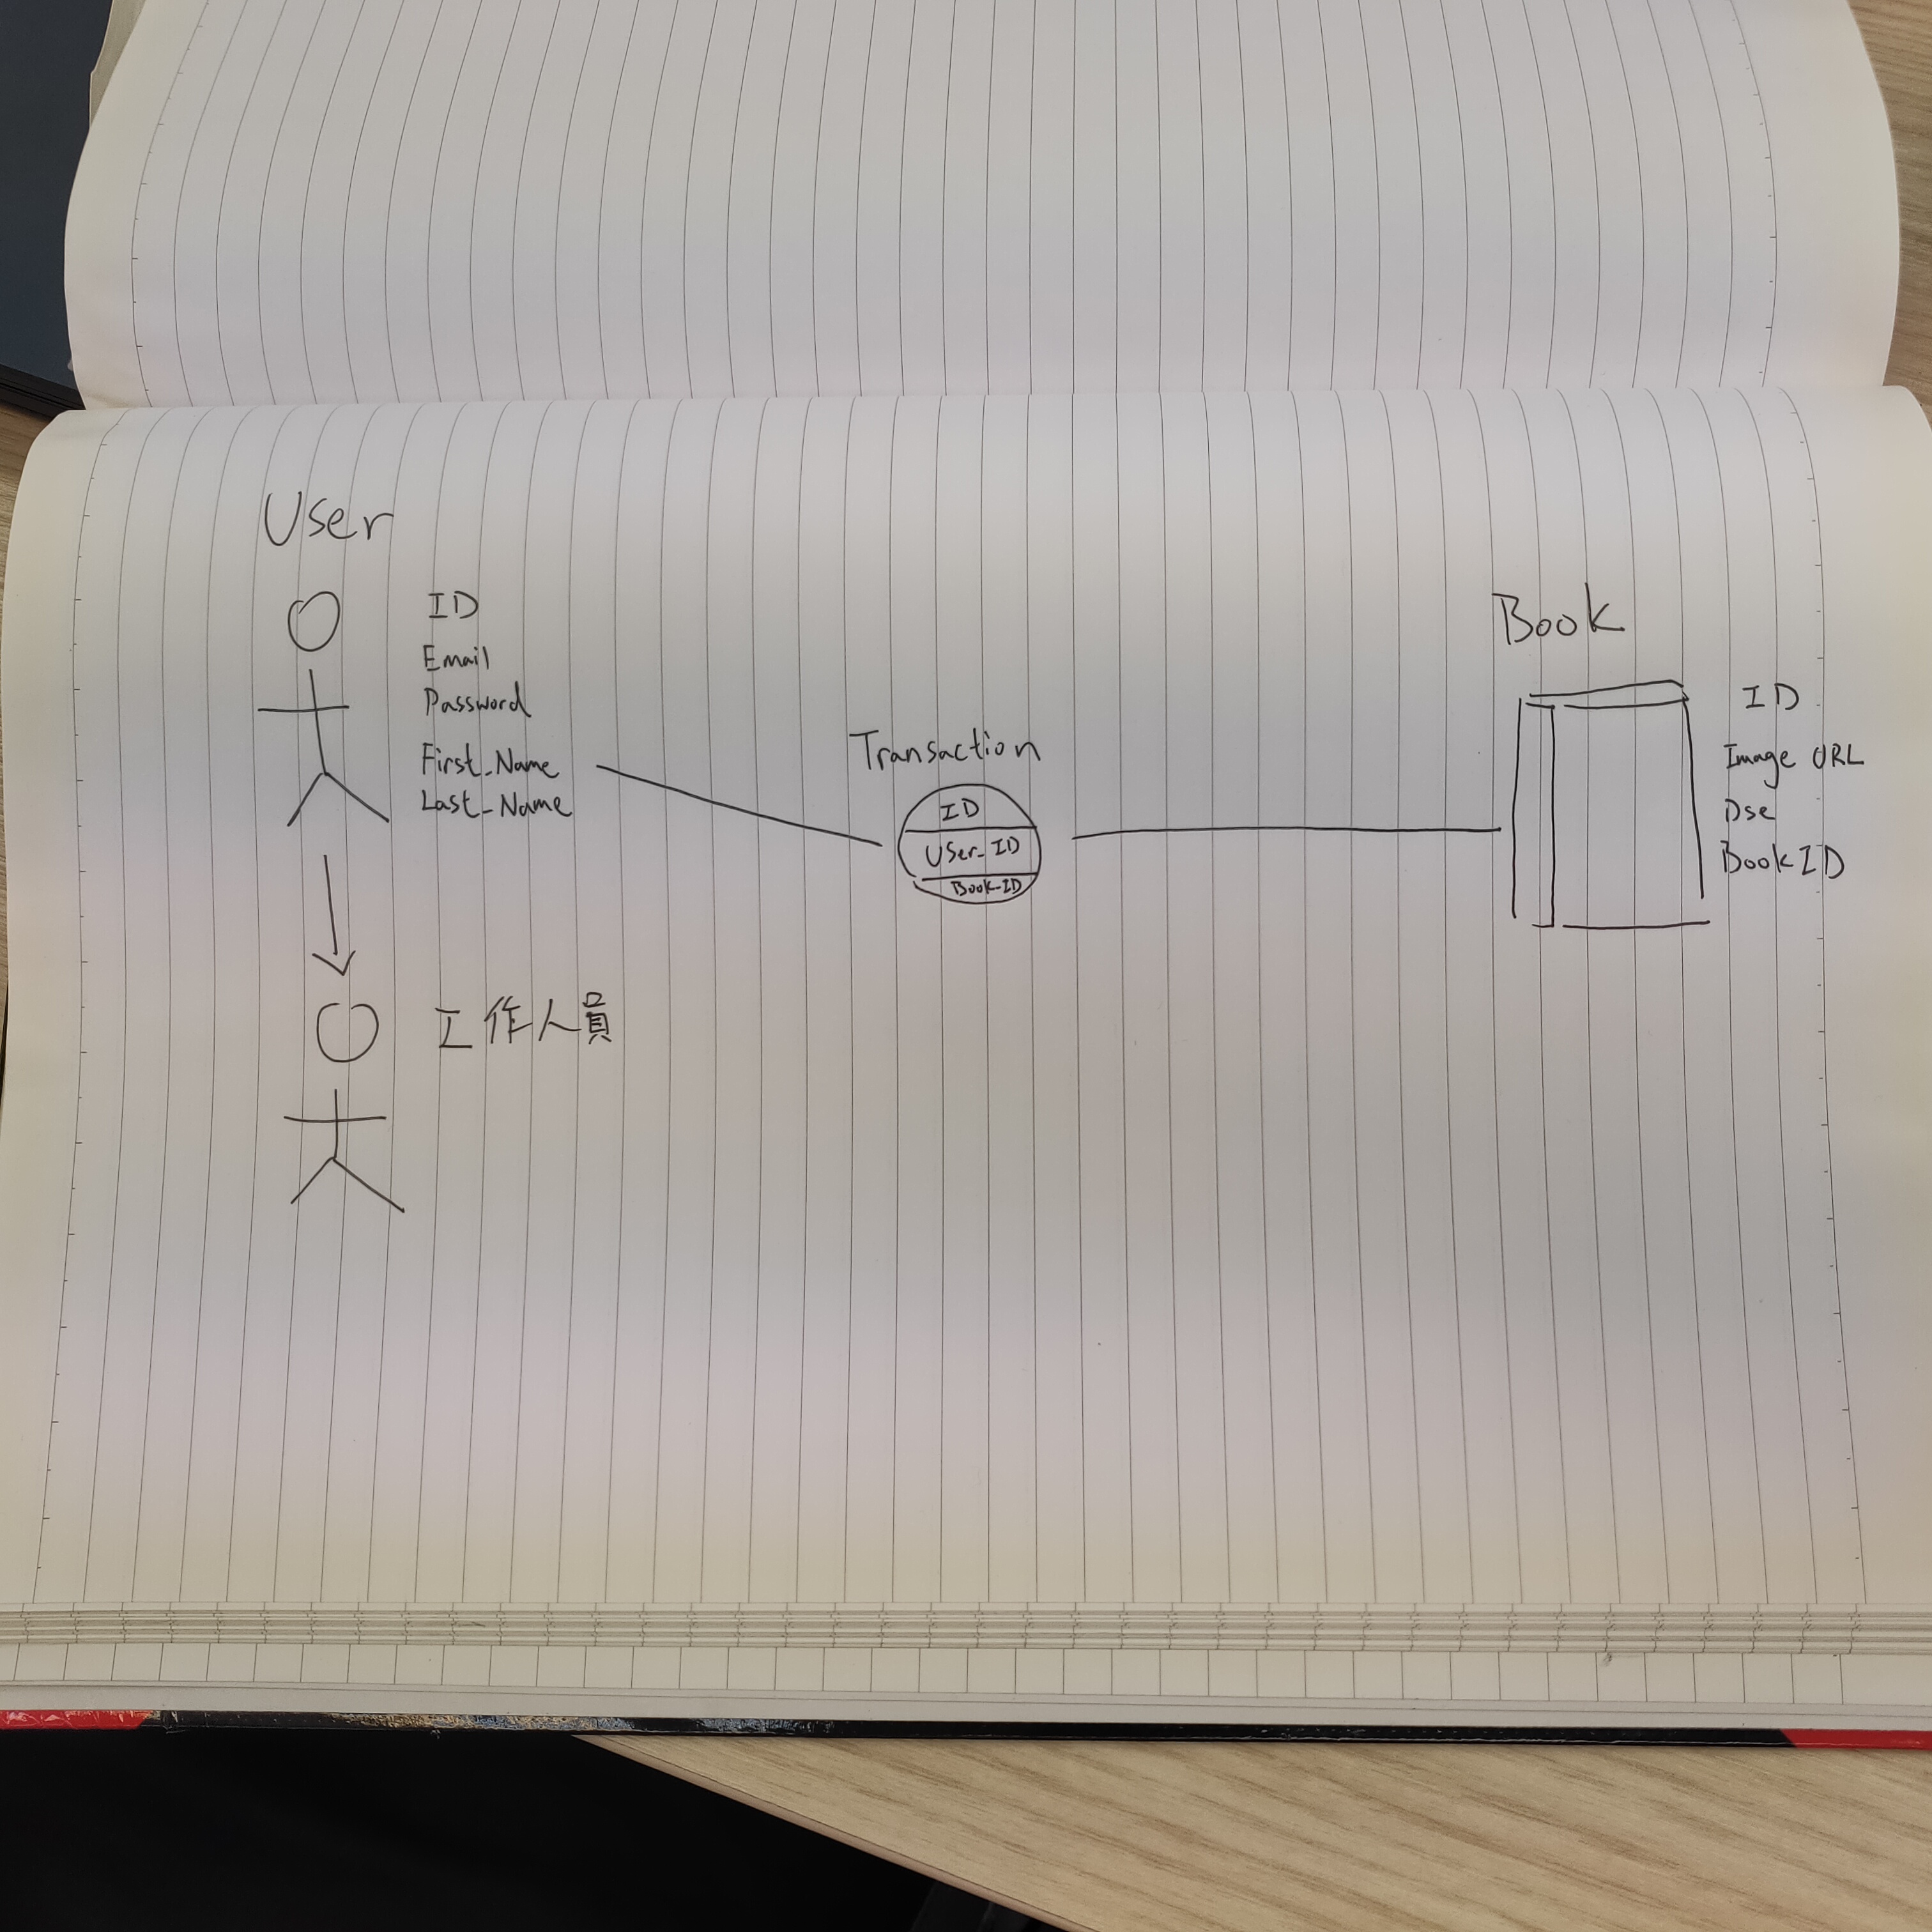 User
ID
Email
Password
First_Name
Last_Name
工作人員
Transaction
ID
User_ID
Book_ID
Book
ID
Image URL
Dse
Book ID